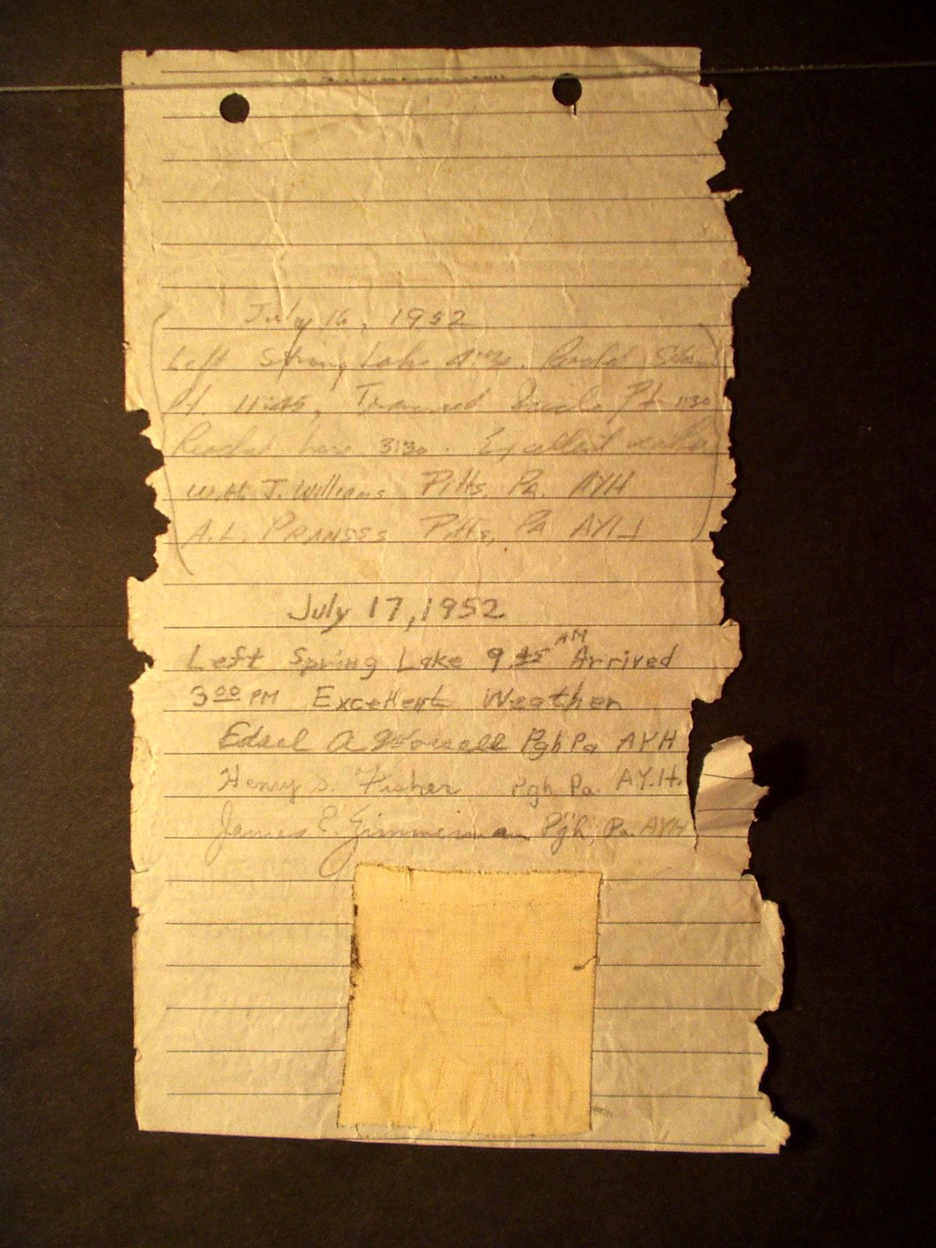 July 16, 1952
Left Spring Lake
Pt. 11:45, Pt 1:30
Reached here 3:30. Excellent weather
W.H. J. Williams Pitts, Pa. AYH
A.L. PRANSES Pitts, Pa AYH
July 17, 1952
Left Spring Lake 9 45 AM Arrived
3 00 PM Excellent Weather
Edsel A Pgh Pa AYH
Henry S. Fisher Pgh Pa. A.Y.H.
James E. Zimmerman Pgh, Pa. AYH